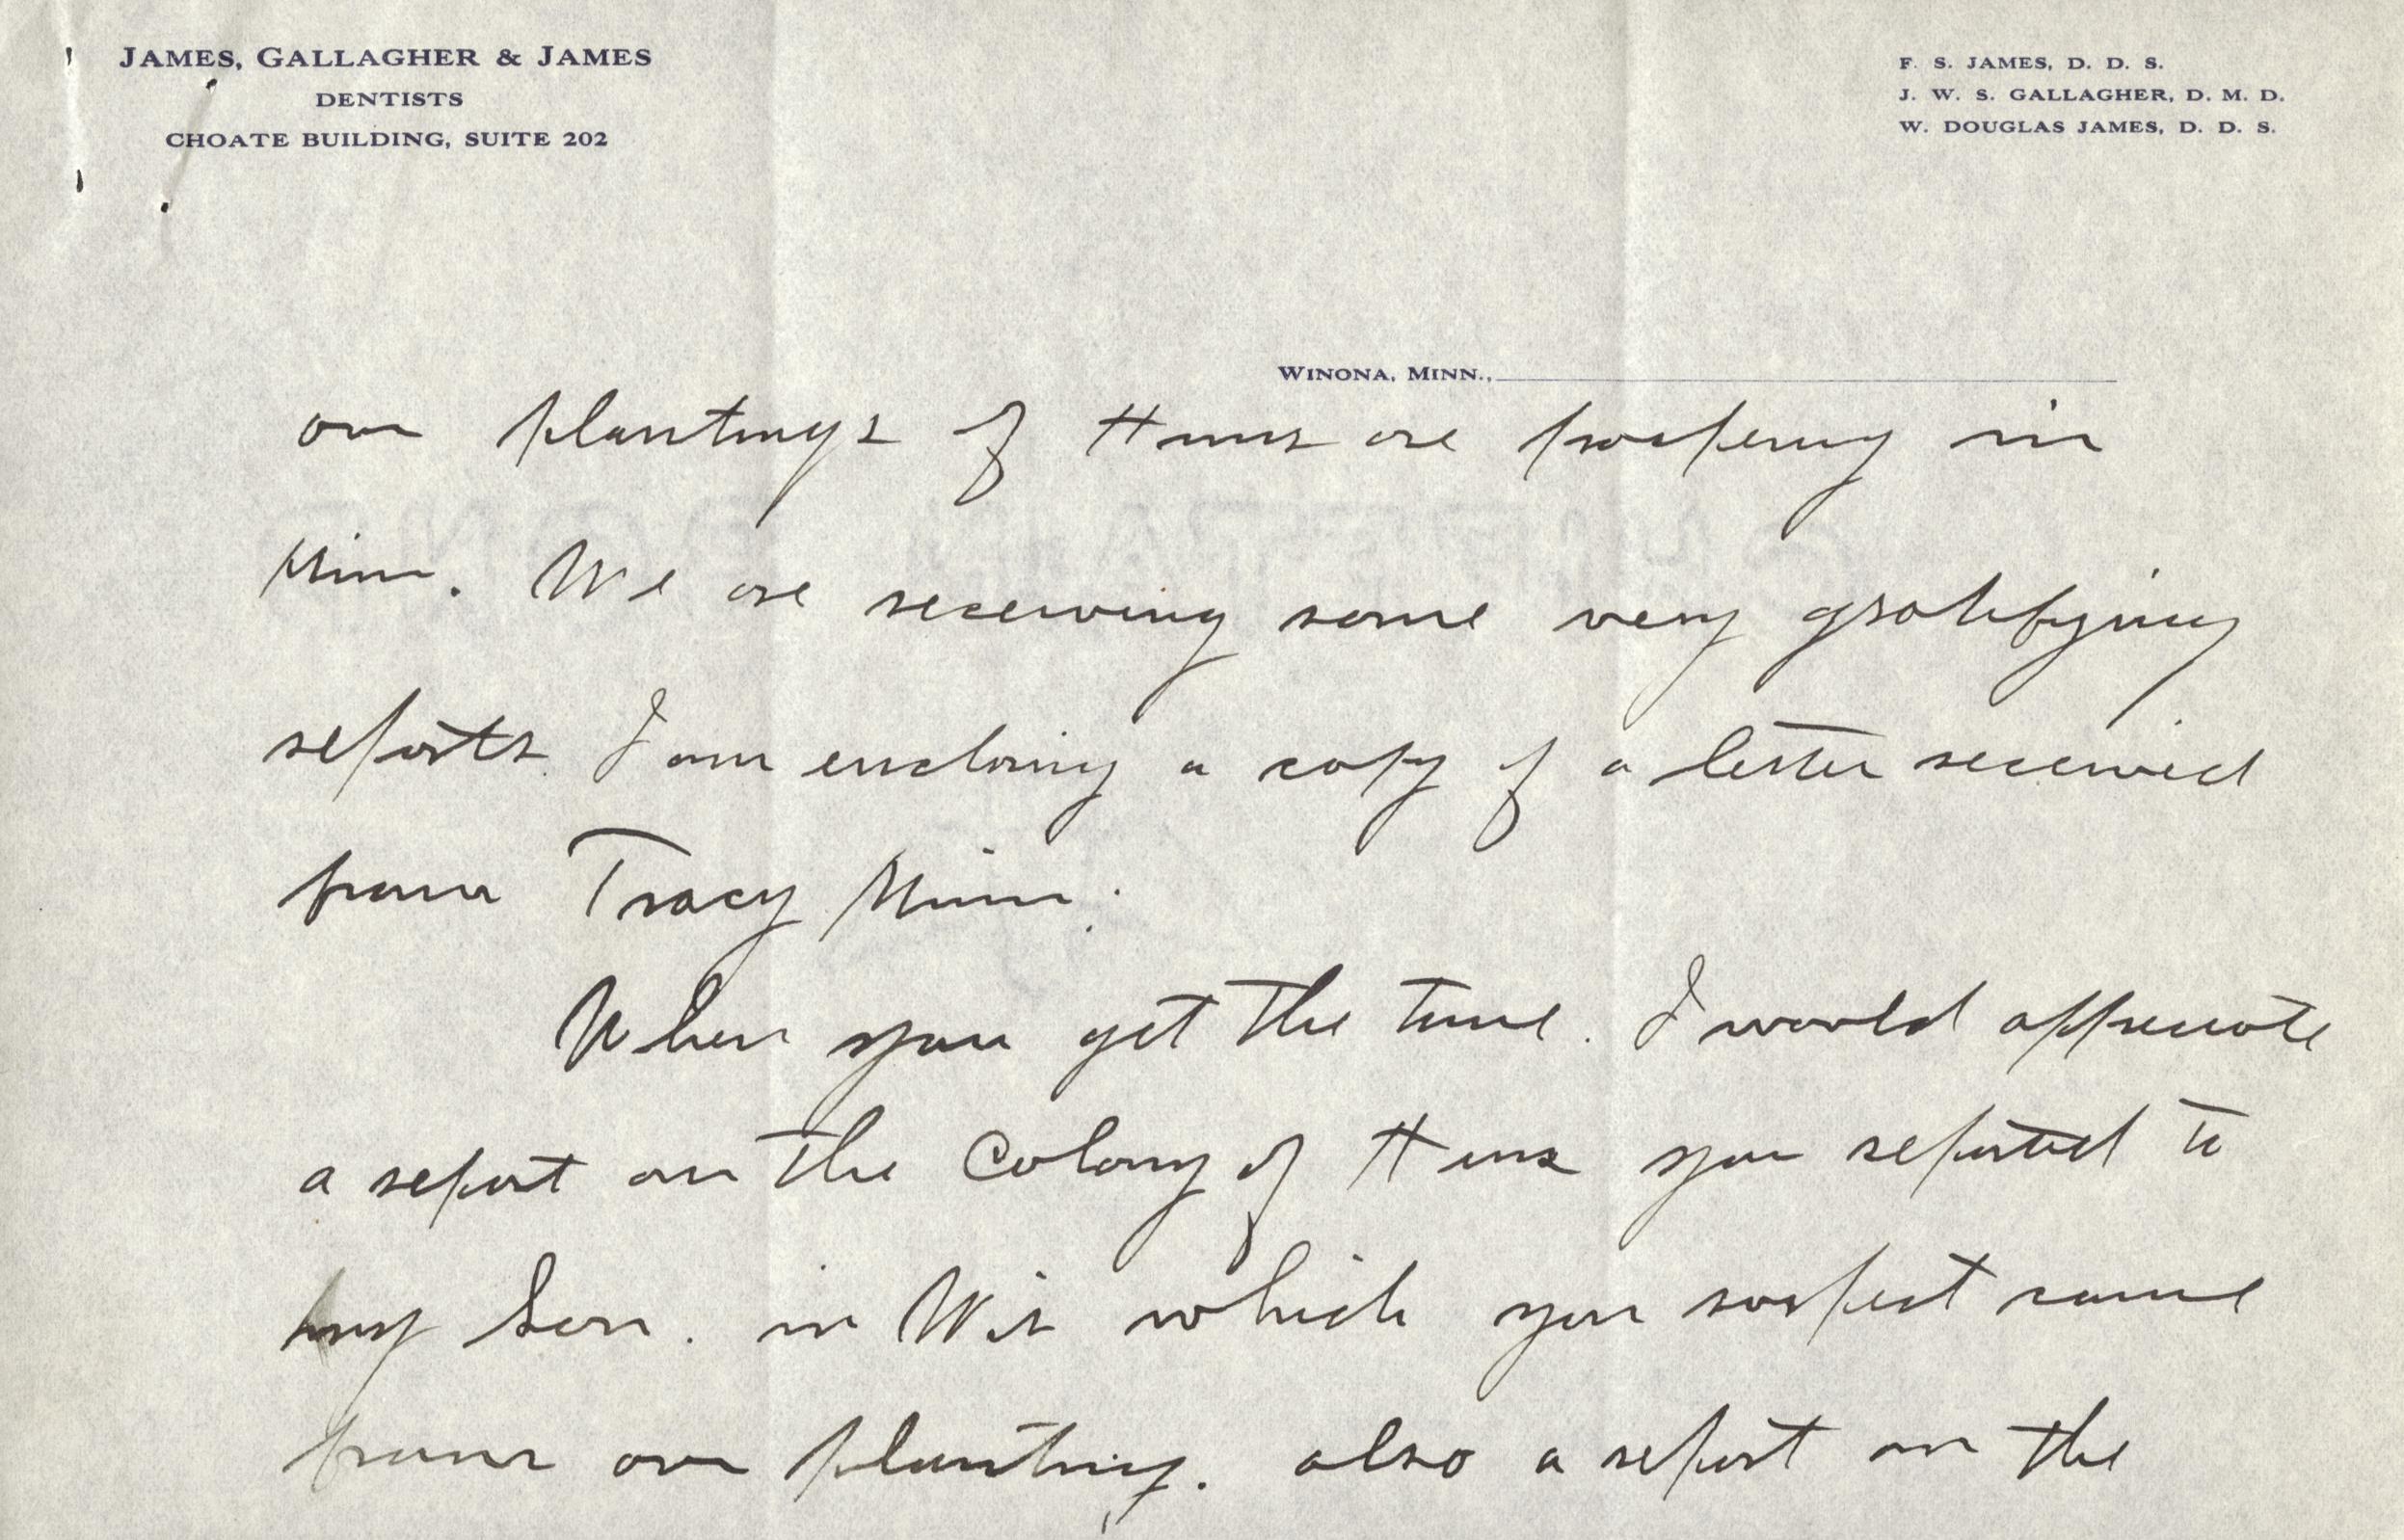 JAMES, GALLAGHER & JAMES
DENTISTS
CHOATE BUILDING, SUITE 202
F. S. JAMES, D. D. S.
J. W. S. GALLAGHER, D. M. D.
W. DOUGLAS JAMES, D. D. S.
WINONA, MINN.,
our plantings of Huns are prospering in
Minn. We are receiving some very gratifying
reports. I am enclosing a copy of a letter received
from Tracy Minn.
When you get the time. I would appreciate
a report on the Colony of Huns you reported to
my Son. in Wis which you suspect came
from our planting. also a report on the